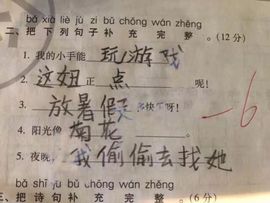 bǎ xià liè jù zi bǔ chōng wán zhěng
二、把下列句子补充完整。(12分)
1. 我的小手能玩游戏
2. 这妞正点呢!
3. 放暑假多快呀!
4. 阳光像菊花
5. 夜晚,我偷偷去找她
-6
bǎ shī jù bǔ chōng wán zhěng
三、把诗句补充完整。(6分)